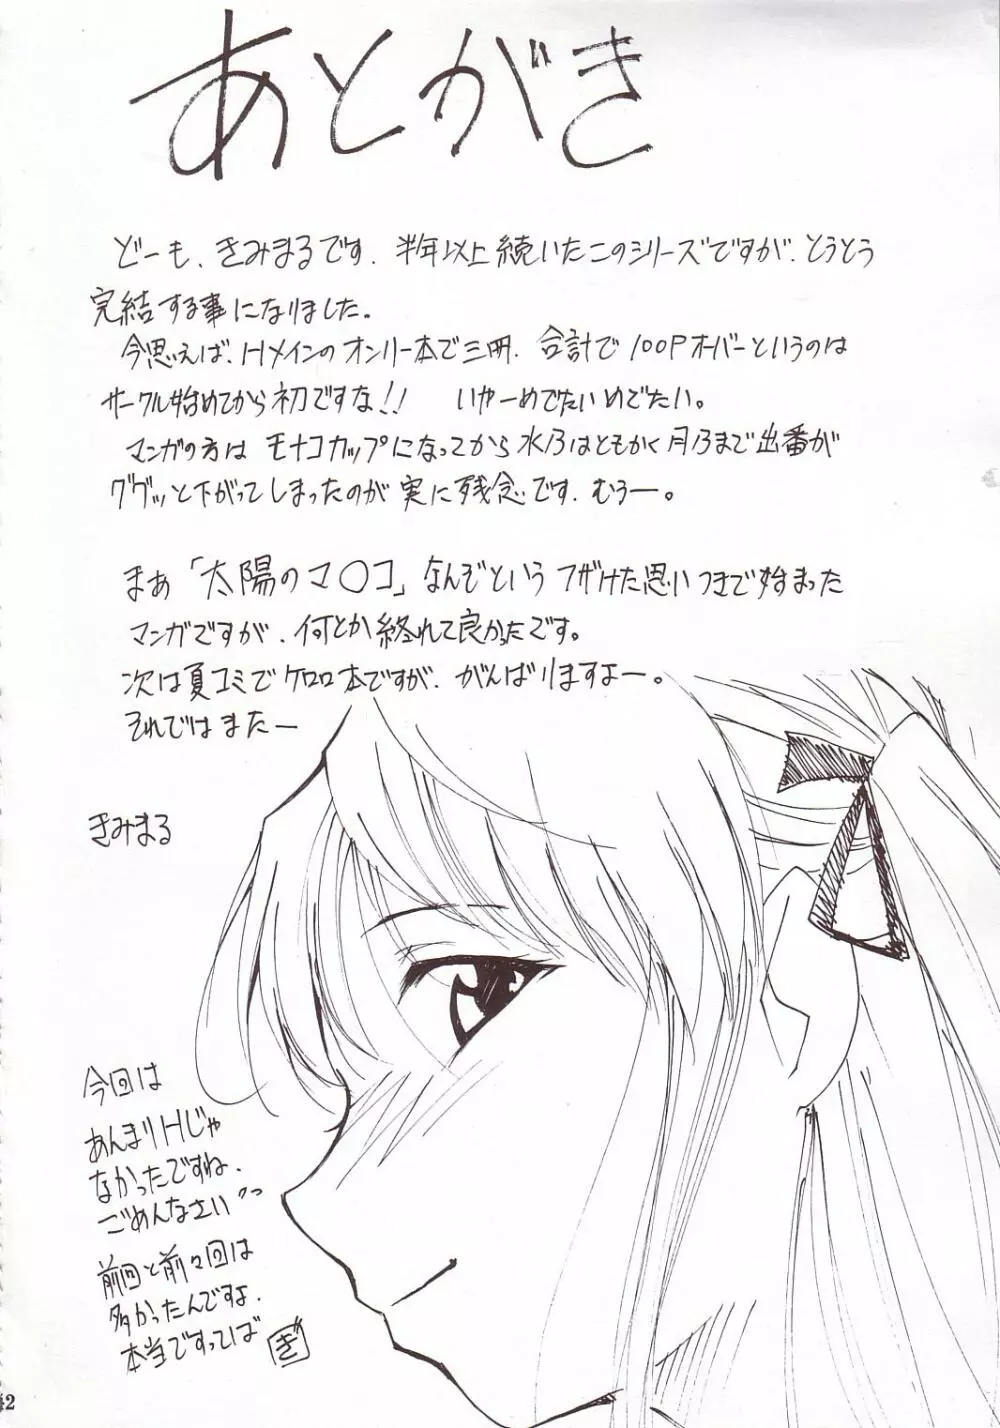 あとがき
どーも、きみまるです。半年以上続いたこのシリーズですが、とうとう
完結する事になりました。
今思えば、Hメインのオンリー本で三冊、合計で100Pオーバーというのは
サークル始めてから初ですな!! いやーめでたいめでたい。
マンガの方はモナコカップになってから水乃はともかく月乃まで出番が
ググッと下がってしまったのが実に残念です。むぅー。
まぁ「太陽のマ○コ」なんぞというフザけた思いつきで始まった
マンガですが、何とか終れて良かったです。
次は夏コミでケロロ本ですが、がんばりますよー。
それではまたー
きみまる
今回は
あんまりHじゃ
なかったですね。
ごめんなさい
前回と前々回は
多かったんですよ。
本当ですってば
42